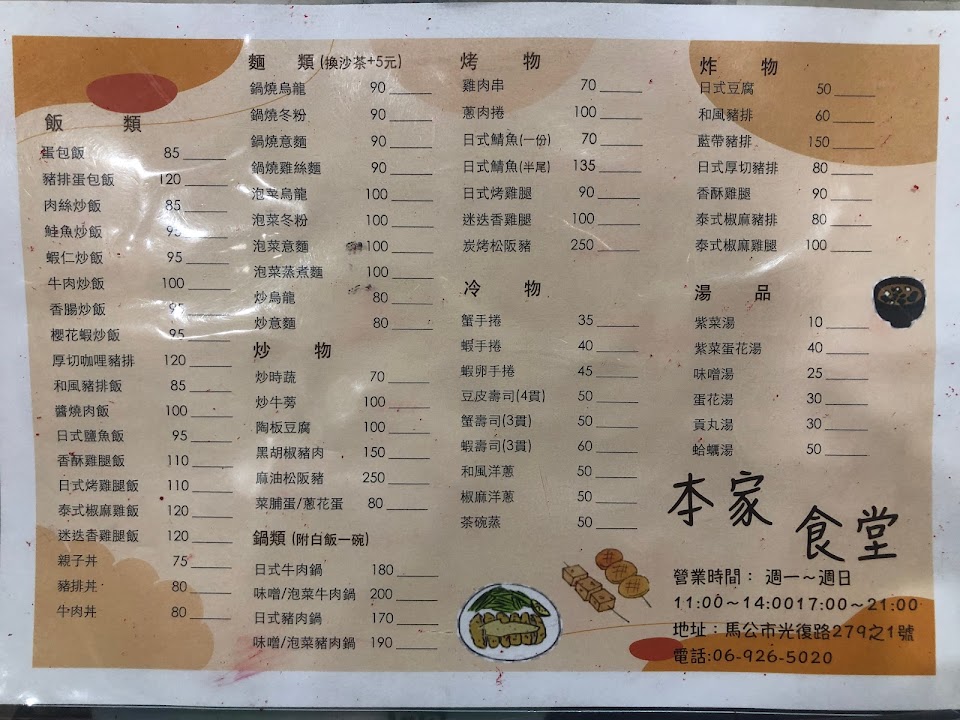 飯 類
蛋包飯 85
豬排蛋包飯 120
肉絲炒飯 85
鮭魚炒飯 95
蝦仁炒飯 95
牛肉炒飯 100
香腸炒飯 95
櫻花蝦炒飯 95
厚切咖哩豬排 120
和風豬排飯 85
醬燒肉飯 100
日式鹽魚飯 95
香酥雞腿飯 110
日式烤雞腿飯 110
泰式椒麻雞飯 120
迷迭香雞腿飯 120
親子丼 75
豬排丼 80
牛肉丼 80
麵 類 (換沙茶+5元)
鍋燒烏龍 90
鍋燒冬粉 90
鍋燒意麵 90
鍋燒雞絲麵 90
泡菜烏龍 100
泡菜冬粉 100
泡菜意麵 100
泡菜蒸煮麵 100
炒烏龍 80
炒意麵 80
炒 物
炒時蔬 70
炒牛蒡 100
陶板豆腐 100
黑胡椒豬肉 150
麻油松阪豬 250
菜脯蛋/蔥花蛋 80
鍋類 (附白飯一碗)
日式牛肉鍋 180
味噌/泡菜牛肉鍋 200
日式豬肉鍋 170
味噌/泡菜豬肉鍋 190
烤 物
雞肉串 70
蔥肉捲 100
日式鯖魚(一份) 70
日式鯖魚(半尾) 135
日式烤雞腿 90
迷迭香雞腿 100
炭烤松阪豬 250
冷 物
蟹手捲 35
蝦手捲 40
蝦卵手捲 45
豆皮壽司(4貫) 50
蟹壽司(3貫) 50
蝦壽司(3貫) 60
和風洋蔥 50
椒麻洋蔥 50
茶碗蒸 50
炸 物
日式豆腐 50
和風豬排 60
藍帶豬排 150
日式厚切豬排 80
香酥雞腿 90
泰式椒麻豬排 80
泰式椒麻雞腿 100
湯 品
紫菜湯 10
紫菜蛋花湯 40
味噌湯 25
蛋花湯 30
貢丸湯 30
蛤蠣湯 50
本家
食堂
營業時間： 週一～週日
11:00～14:0017:00～21:00
地址：馬公市光復路279之1號
電話:06-926-5020